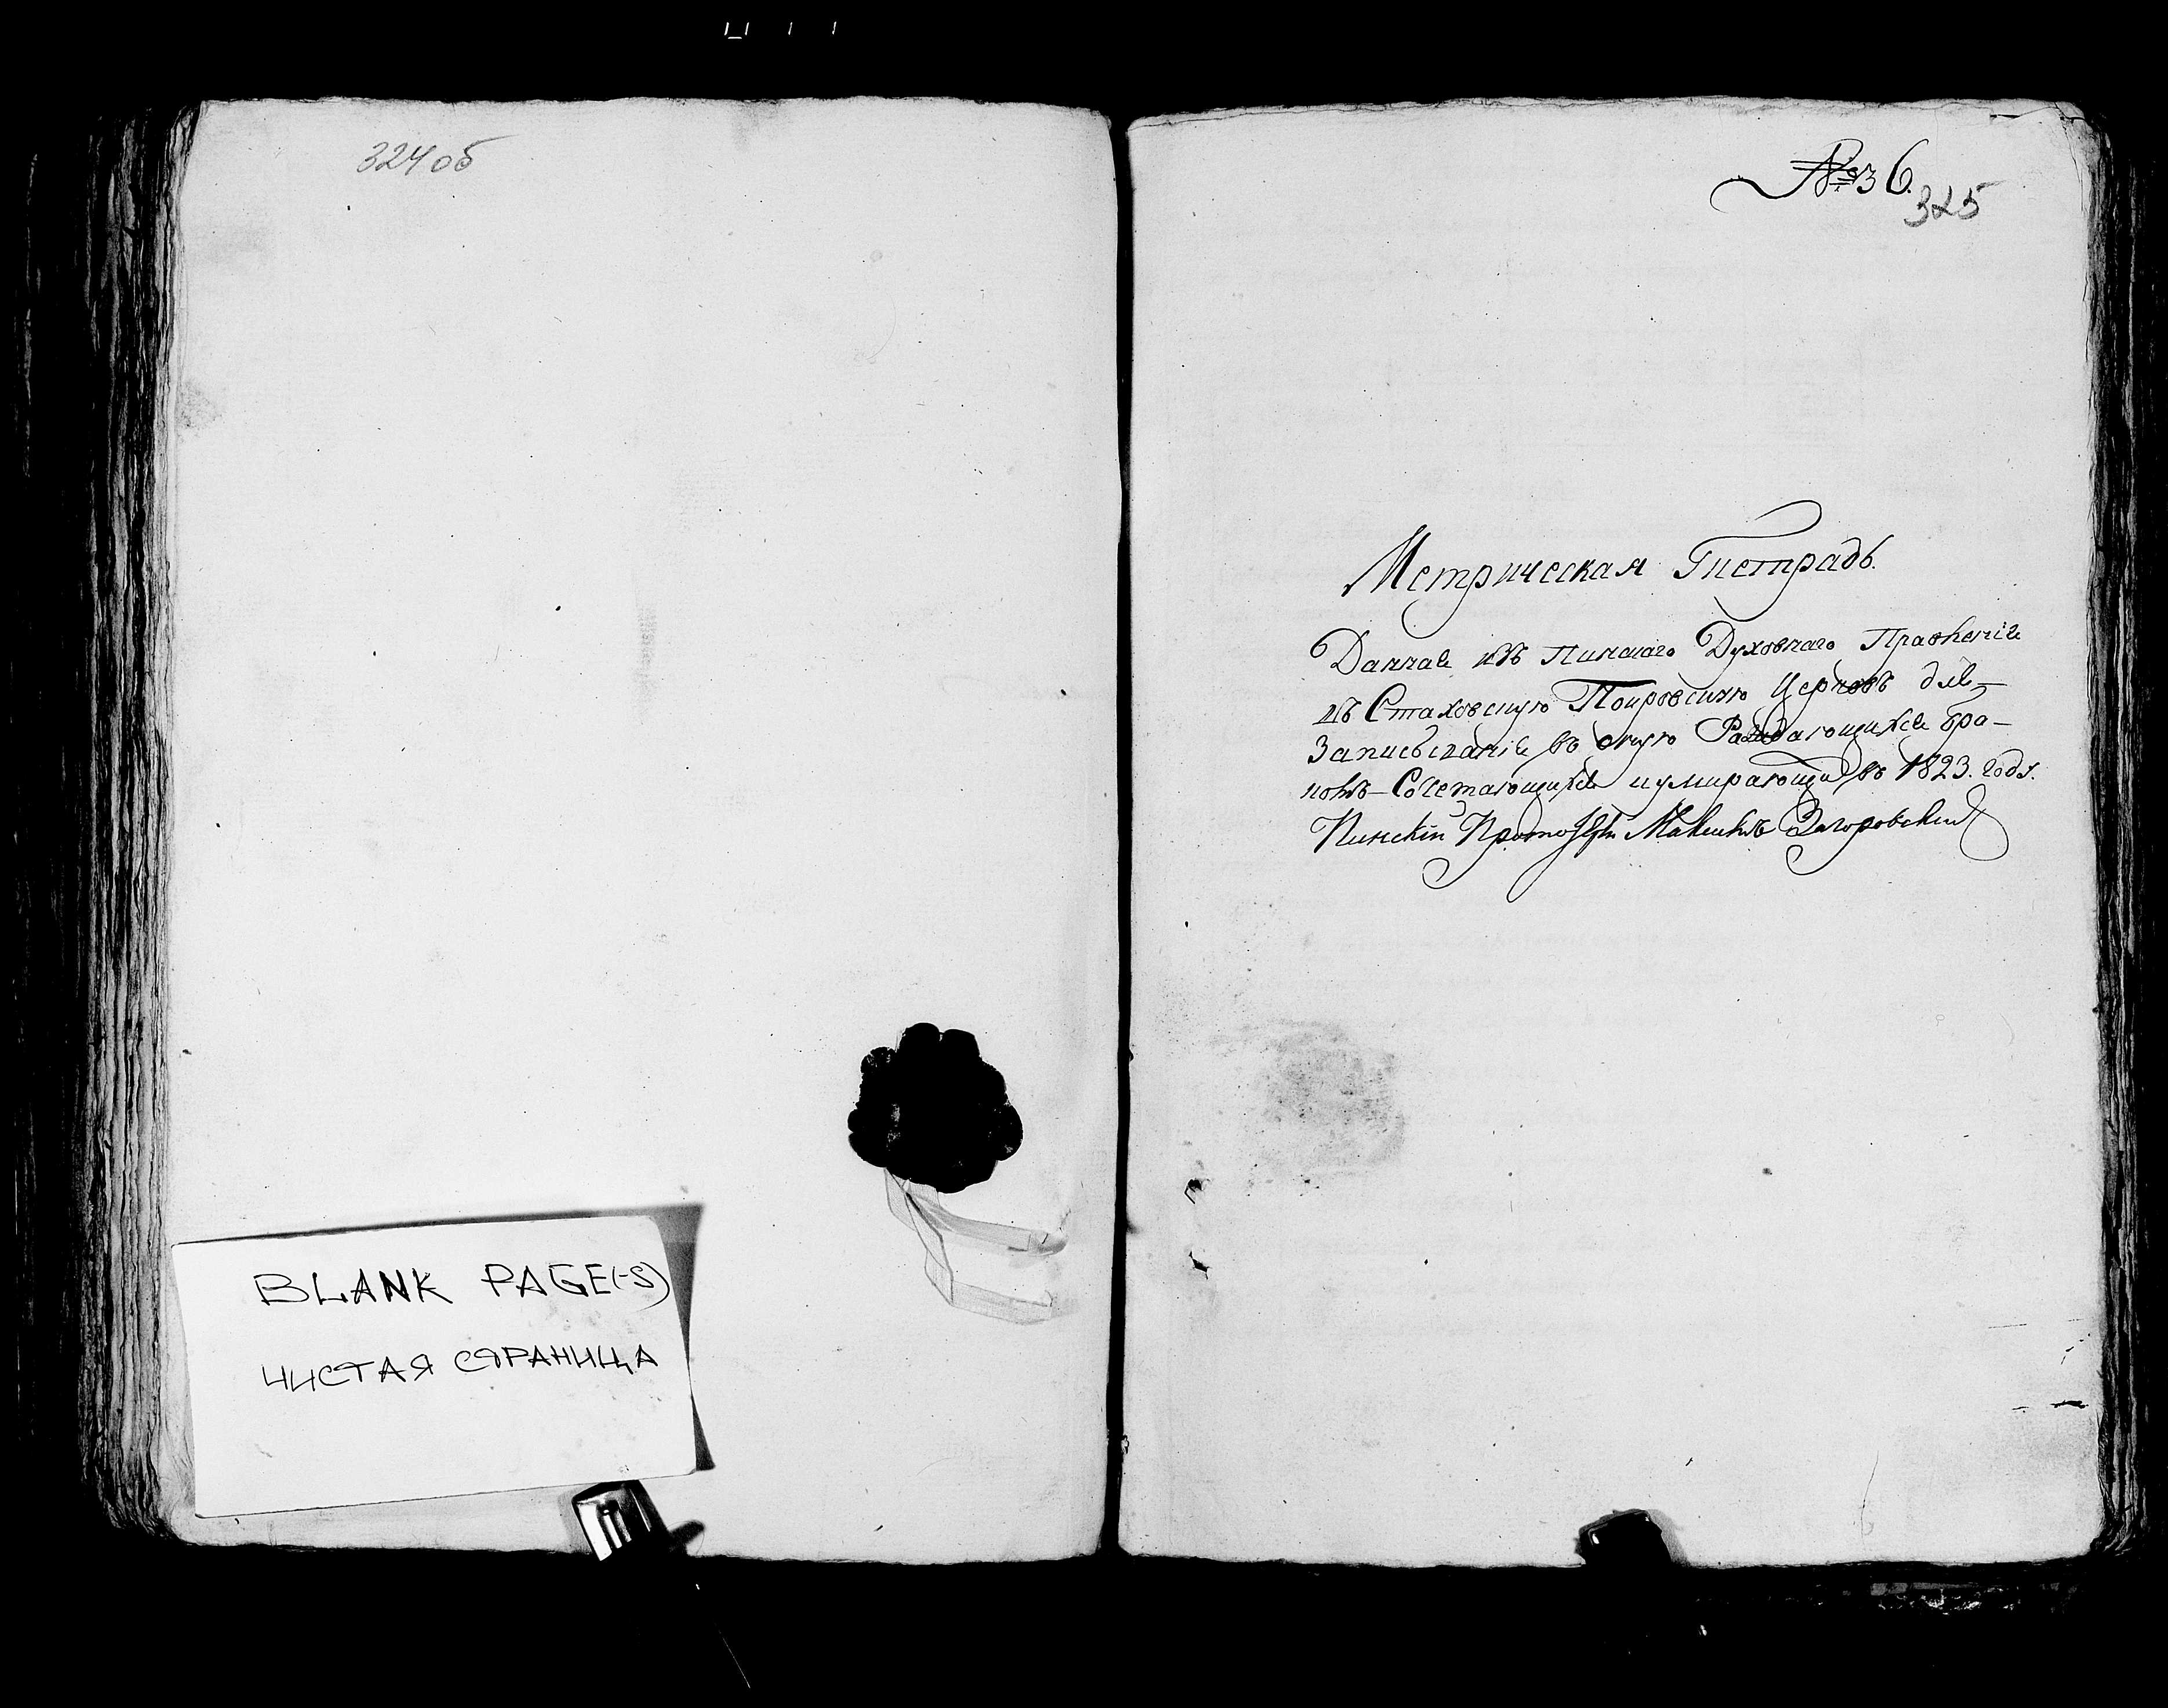 324 об
BLANK PAGE(-S)
ЧИСТАЯ СТРАНИЦА
№ 36.
325
Метрическая Тетрадь.
Данная изъ Пинскаго Духовнаго Правленія
въ Стаховскую Покровскую Церковь для
Записыванія въ оную Раждающихся бра-
комъ Сочетающихся и умирающих въ 1823. году.
Пинскій Протоіерей Максимъ Загоровский